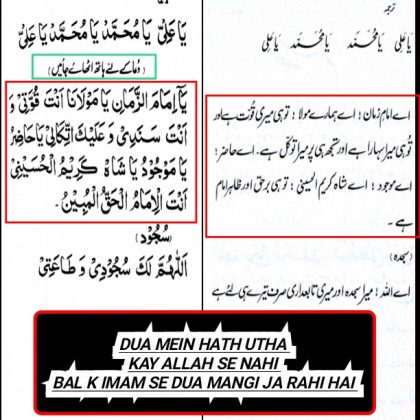 ترجمہ
يَا عَلِيُّ يَا مُحَمَّدُ يَا مُحَمَّدُ يَا عَلِيُّ
(دُعا کے لئے ہاتھ اٹھائے جائیں)
يَآ اِمَامَ الزَّمَانِ يَا مَوْلَانَا اَنْتَ قُوَّتِيْ وَ
اَنْتَ سَنَدِيْ وَ عَلَيْكَ اتِّكَالِيْ يَا حَاضِرُ
يَا مَوْجُودُ يَا شَاهْ كَرِيْمُ الْحُسَيْنِيْ
اَنْتَ الْاِمَامُ الْحَقُّ الْمُبِيْنُ.
(سُجُوْد)
اَللّٰهُمَّ لَكَ سُجُوْدِيْ وَ طَاعَتِيْ
یا علی یا محمد یا محمد یا علی
اے امام زمان! اے ہمارے مولا! تو ہی میری قوت ہے اور
تو ہی میرا سہارا ہے اور تجھ ہی پر میرا توکل ہے۔ اے حاضر!
اے موجود! اے شاہ کریم الحسینی! تو ہی برحق اور ظاہر امام
ہے۔
(سجدہ)
اے اللہ! میرا سجدہ اور میری تابعداری صرف تیرے ہی لئے ہے
DUA MEIN HATH UTHA
KAY ALLAH SE NAHI
BAL K IMAM SE DUA MANGI JA RAHI HAI